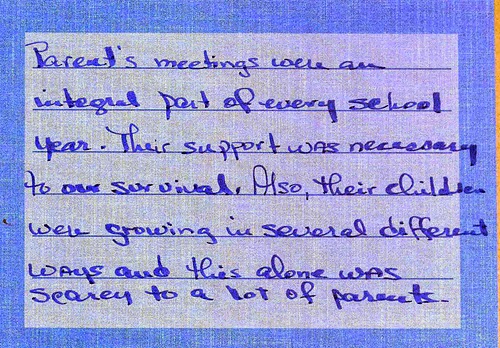 Parent's meetings were an
integral part of every school
year. Their support was necessary
to our survival. Also, their children
were growing in several different
ways and this alone was
scarey to a lot of parents.